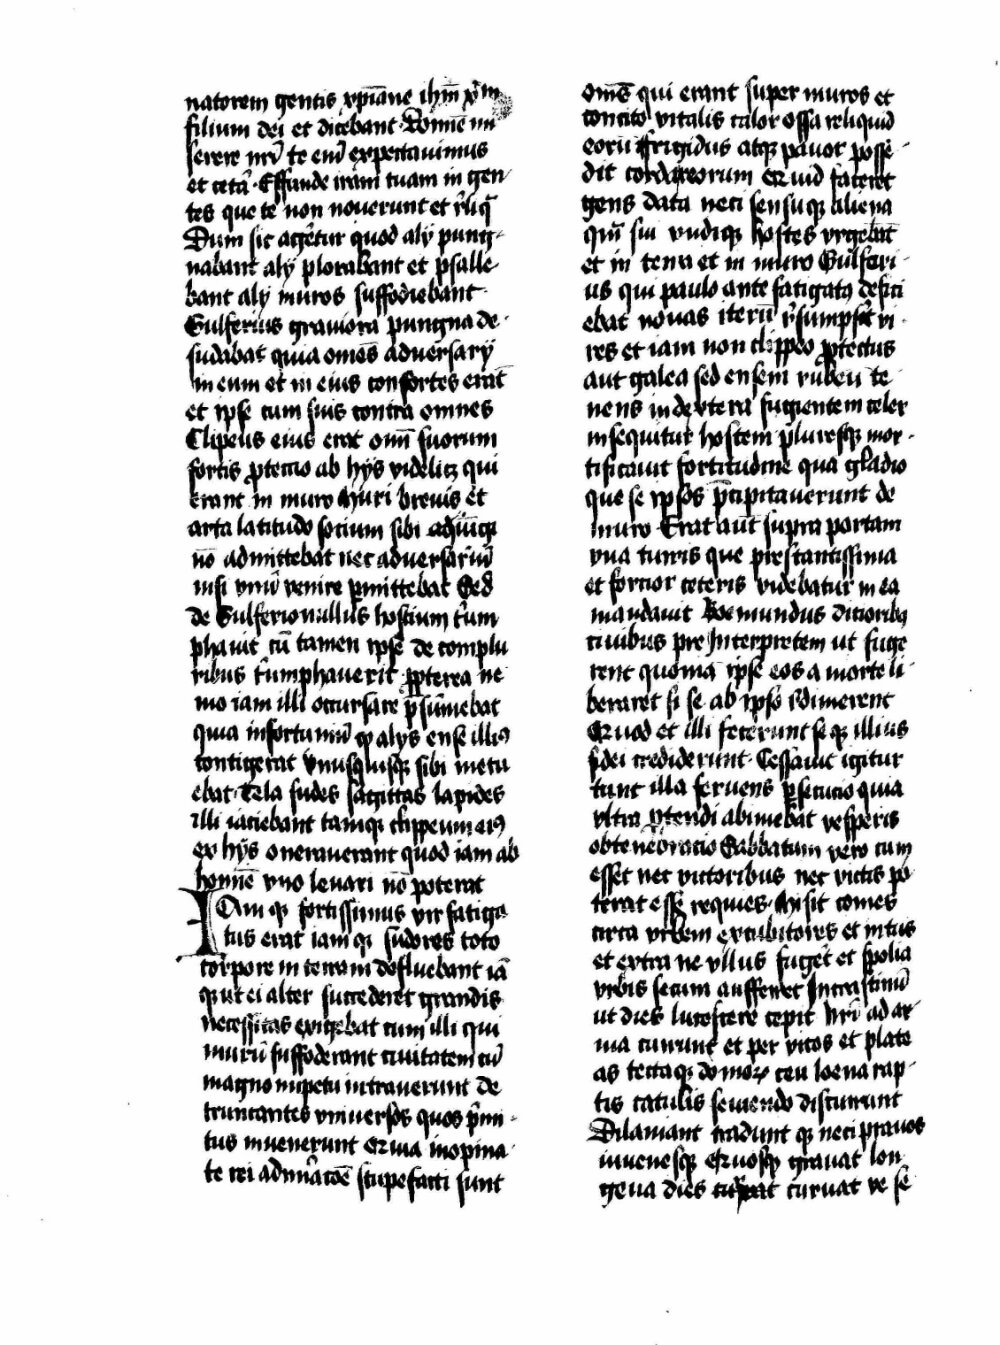 natorem gentis xpiane ihm xpm
filium dei et dicebant Domine mi
serere nri te eni expectauimus
et ceta. Effunde iram tuam in gen
tes que te non nouerunt et rliq
Dum sic agetur quod alij pung
nabant alij plorabant et psalle
bant alij muros suffodiebant
Gulferius grauiora pungna de
sudabat quia omes aduersarij
in eum et in eius consortes erat
et ipse cum suis contra omnes
Clipeus eius erat omi suorum
fortis ptectio ab hijs videlicz qui
erant in muro Muri breuis et
arta latitudo socium sibi
no admittebat nec aduersariu
nisi vnu venire pmittebat Sed
de Gulferio nullus hostium trium
phauit cu tamen ipse de complu
ribus triumphauerit ppterea ne
mo iam illi occursare psumebat
quia infortuniu q alijs ense illi9
contigerat vnusquisq sibi metu
ebat. Tela sudes sagittas lapides
illi iaciebant tamq clippeum ei9
ex hijs onerauerant quod iam ab
homine vno leuari no poterat
Iam q fortissimus vir fatiga
tus erat iam q sudores toto
corpore in terram defluebant ia
q ut ei alter succederet grandis
necessitas exigebat cum illi qui
muru suffoderant ciuitatem cu
magno impetu intrauerunt De
truncantes vniuersos quos pmi
tus inuenerunt Qua inopina
te rei admiracoe stupefacti sunt
omes qui erant super muros et
concito vitalis calor ossa reliquid
eoru Frigidus atq pauor posse
dit corda eorum Quid faceret
gens data neci sensuq aliena
qm sui vndiq hostes vrgebat
et in terra et in muro Gulferi
us qui paulo ante fatigat9 defici
ebat nouas iteru rsumpsit vi
res et iam non clippeo ptectus
aut galea sed ensem rubeu te
nens in dextera fugientem celer
insequitur hostem pluresq mor
tificauit fortitudine qua gladio
que se ipsos pcipitauerunt de
muro Erat aut supra portam
vna turris que prestantissima
et fortior ceteris videbatur in ea
mandauit Boemundus dicioribq
ciuibus pre Interpretem ut fuge
rent quoniam ipse eos a morte li
beraret si se ab ipso redimerent
Quod et illi fecerunt se q illius
fidei crediderunt. Cessauit igitur
tunc illa feruens psecucio quia
vltra ptendi abinebat vesperis
obtenebracio Sabbatum vero cum
esset nec victoribus nec victis po
terat esse requies. Misit comes
circa vrbem excubitores et intus
et extra ne vllus fuget et spolia
vrbis secum aufferret In crastinu
ut dies lucescere cepit nri ad ar
ma currunt et per vicos et plate
as tectaq domorz ceu leena rap
tis catulis seuiendo discurrunt
Dilaniant tradunt q neci prauos
iuuenesq Quosq grauat lon
geua dies curuat ve se